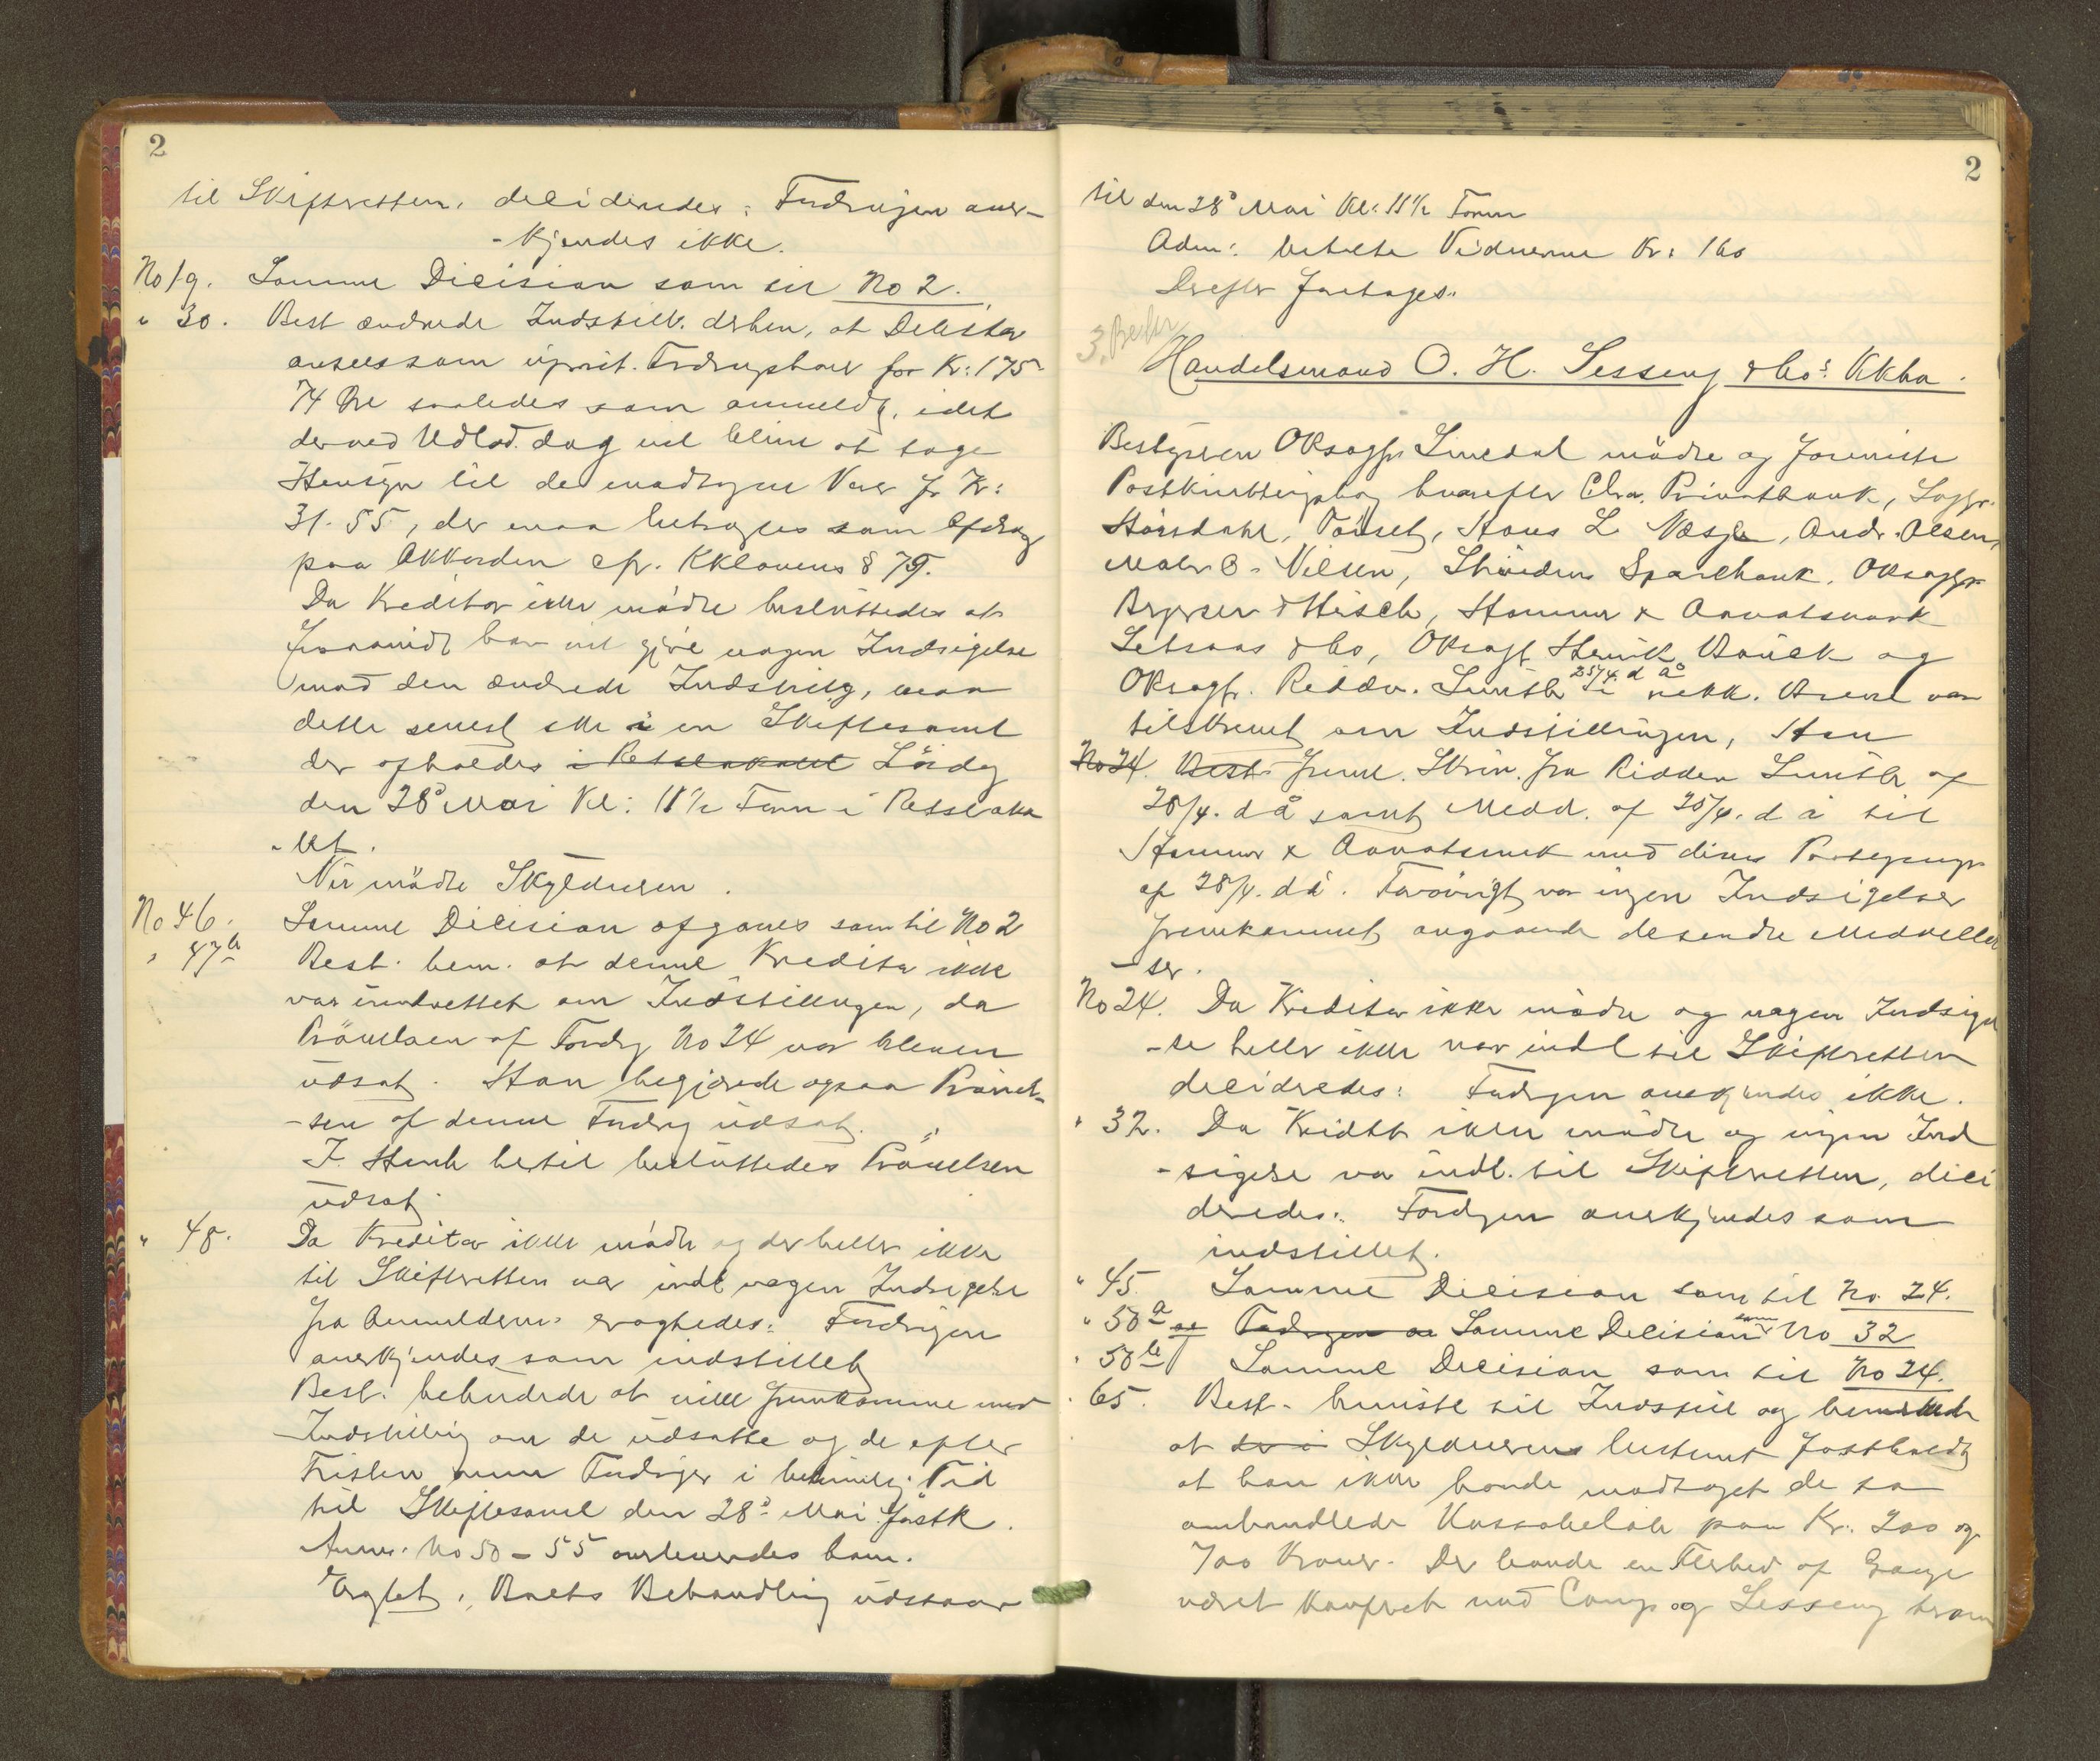 2
til Skifteretten, decideredes: Fordringen aner-
-kjendes ikke.
No 19. Samme Dicision som til No 2.
" 30. Best ændrede Indstill. derhen, at
ansees som uprit. Fordringshaver for Kr: 175
74 Øre saaledes som anmeldt, idet
der ved Udlod. dog vil blive at tage
Hensyn til de modtagne Varer for Kr:
31.55, der maa betragtes som Afdrag
paa Akkorden cfr. Kklovens § 79.
Da Kreditor ikke mødte besluttedes at
forsaavidt han vil gjøre nogen Indsigelse
mod den ændrede Indstillg, maa
dette senest ske i en Skiftesaml
der afholdes i Retslokalet Lördag
den 28de Mai Kl: 11 1/2 Form i Retsloka
-let.
Nu mödte Skyldneren.
No 46. Samme Dicision afgaves som til No 2
" 47b Best. bem. at denne Kreditor ikke
var underrettet om Indstillingen, da
Prövelsen af Fordrg No 24 var bleven
udsat. Han begjærede ogsaa Prövel-
-sen af denne Fordrg udsat.
I Henh hertil besluttedes Prövelsen
udsat.
" 48. Da Kreditor ikke mödte og der heller ikke
til Skifteretten var indl nogen Indsigelse
fra Anmelderne eragtedes: Fordringen
anerkjendes som indstillet
Best. bebudede at ville fremkomme med
Indstilling om de udsatte og de efter
Fristen anm Fordringer i betimelig Tid
til Skiftesaml den 28de Mai förstk.
Anm. No 50 - 55 overleveredes ham.
Oplæst, Boets Behandling udstaar
2
til den 28de Mai Kl: 11 1/2 Form
Adm: betalte Vidnerne Kr: 1.60
Derefter foretages:
Handelsmand O. H. Sesseng & Co's Kkbo.
Bestyreren ORsagf. Smedal mödte og fremviste
Postkvitteringsbog hvorefter Chra. Privatbank, Sagf.
Andr. Olsen,
Nilsen, Sparebank, ORsagf.
Hammer &
& Co, ORsagf Henrik og
ORsagf. 25/4 d å i rekk. Breve var
tilskrevet om Indstillingen, Han
No 24. Best. freml. Skriv. fra af
28/4. d å samt Medd. af 25/4. d å til
Hammer & med deres Paategning
af 28/4. d å. Forövrigt var ingen Indsigelser
fremkommet angaaende de sendte Meddelel
-ser.
No 24. Da Kreditor ikke mödte og nogen Indsigel
-se heller ikke var indl til Skifteretten
decideredes: Fordrgen anerkjendes ikke.
" 32. Da Kredtr ikke mödte og ingen Ind
-sigelse var indl. til Skifteretten, deci
deredes: Fordrgen anerkjendes som
indstillet.
" 45. Samme Dicision som til No 24.
" 50a og Fordrgen an Samme Decision som No 32
" 50b Samme Decision som til No 24.
" 65. Best. henviste til Indstill og bemærkede
at der i Skyldneren bestemt fastholdt
at han ikke havde modtaget de to
omhandlede Kassobelöb paa Kr. 200 og
700 Kroner. Der havde en Flerhed af Gange
været konfereret med Comp og Sesseng